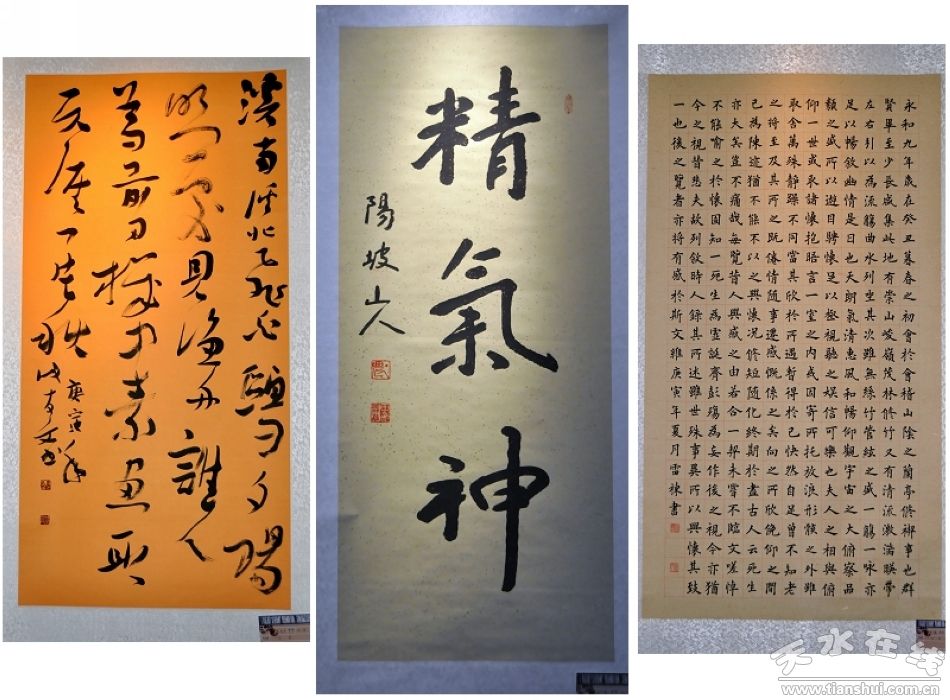 永和九年歲在癸丑暮春之初會於會稽山陰之蘭亭修禊事也群
賢畢至少長咸集此地有崇山峻嶺茂林修竹又有清流激湍映帶
左右引以為流觴曲水列坐其次雖無絲竹管絃之盛一觴一詠亦
足以暢敘幽情是日也天朗氣清惠風和暢仰觀宇宙之大俯察品
類之盛所以遊目騁懷足以極視聽之娛信可樂也夫人之相與俯
仰一世或取諸懷抱晤言一室之內或因寄所托放浪形骸之外雖
取舍萬殊靜躁不同當其欣於所遇暫得於己快然自足曾不知老
之將至及其所之既倦情隨事遷感慨係之矣向之所欣俛仰之間
已為陳迹猶不能不以之興懷況修短隨化終期於盡古人云死生
亦大矣豈不痛哉每覽昔人興感之由若合一契未嘗不臨文嗟悼
不能喻之於懷固知一死生為虛誕齊彭殤為妄作後之視今亦猶
今之視昔悲夫故列敘時人錄其所述雖世殊事異所以興懷其致
一也後之覽者亦將有感於斯文維庚寅年夏月雷棟書
精氣神
陽坡山人
溪南溪北
夕陽
誰人
庚寅年
天水在线
www.tianshui.com.cn